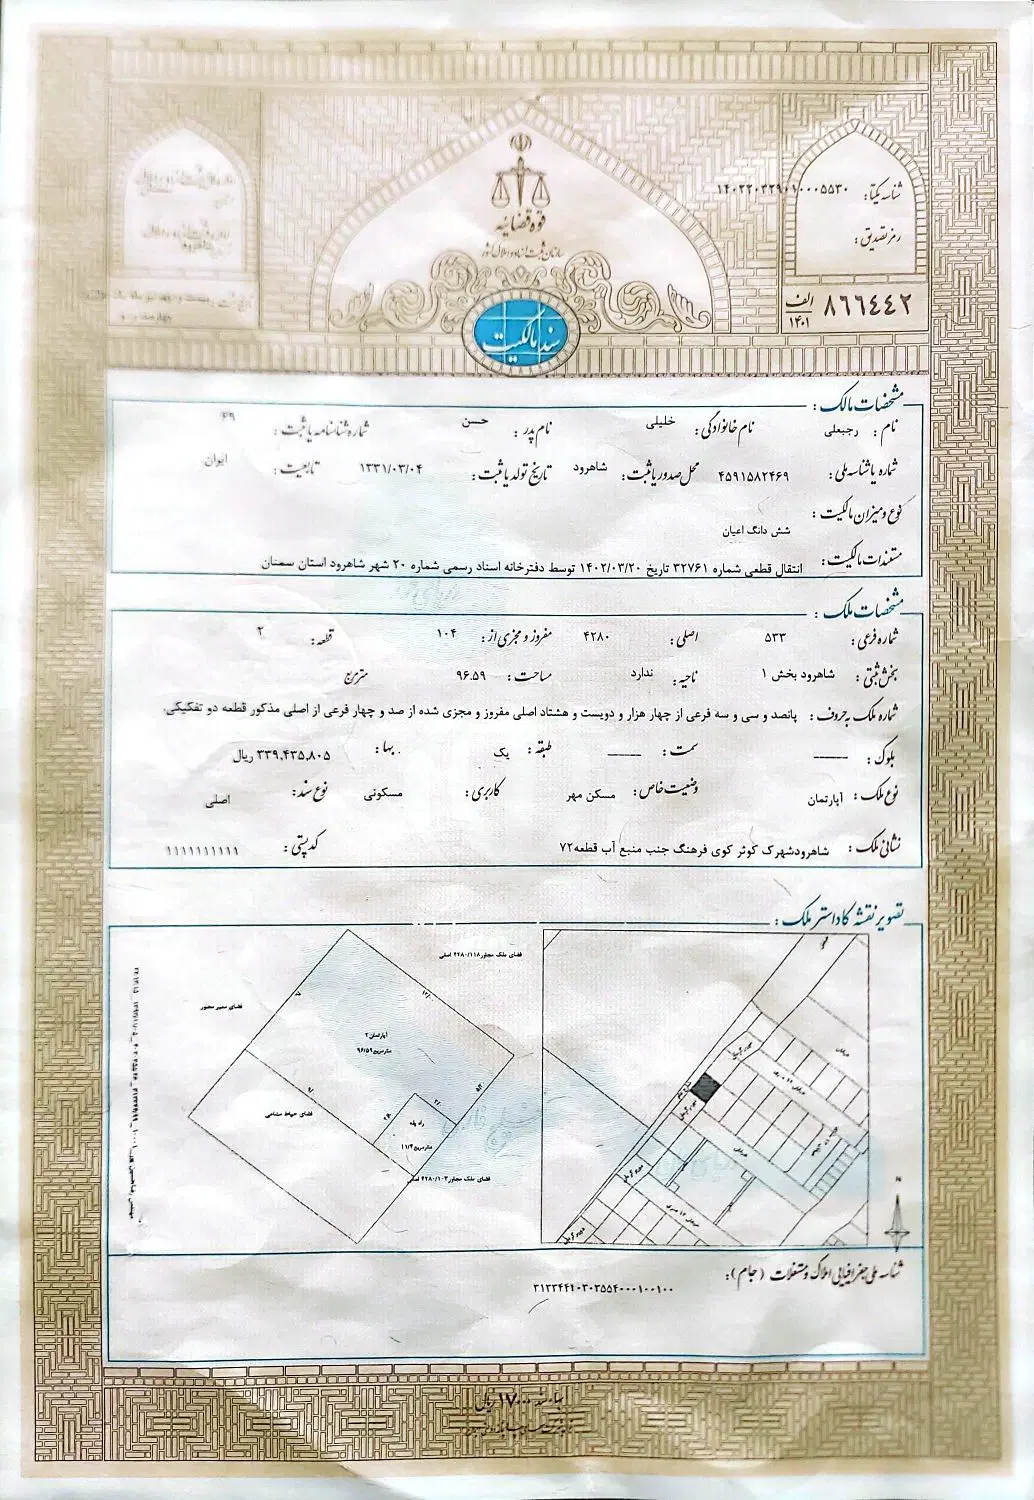 شناسه یکتا: ۱۴۰۳۲۰۳۲۹۰۱۰۰۰۵۵۳۰
رمز تصدیق:
قوه قضائیه
سازمان ثبت اسناد و املاک کشور
۸۶۶۴۴۲ الف ۱۴۰۱
سند مالکیت
مشخصات مالک:
نام: رجبعلی نام خانوادگی: خلیلی نام پدر: حسن شماره شناسنامه یا ثبت: ۴۹
شماره یا شناسه ملی: ۴۵۹۱۵۸۲۴۶۹ محل صدور یا ثبت: شاهرود تاریخ تولد یا ثبت: ۱۳۳۱/۰۳/۰۴ تابعیت: ایران
نوع و میزان مالکیت: شش دانگ اعیان
مستندات مالکیت: انتقال قطعی شماره ۳۲۷۶۱ تاریخ ۱۴۰۲/۰۳/۲۰ توسط دفترخانه اسناد رسمی شماره ۲۰ شهر شاهرود استان سمنان
مشخصات ملک:
شماره فرعی: ۵۳۳ اصلی: ۴۲۸۰ مفروز و مجزی از: ۱۰۴ قطعه: ۲
بخش ثبتی: شاهرود بخش ۱ ناحیه: ندارد مساحت: ۹۶.۵۹ مترمربع
شماره ملک به حروف: پانصد و سی و سه فرعی از چهار هزار و دویست و هشتاد اصلی مفروز و مجزی شده از صد و چهار فرعی از اصلی مذکور قطعه دو تفکیکی.
بلوک: ——— سمت: ——— طبقه: یک بها: ۳۳۹,۴۳۵,۸۰۵ ریال
نوع ملک: آپارتمان وضعیت خاص: مسکن مهر کاربری: مسکونی نوع سند: اصلی
نشانی ملک: شاهرودشهرک کوثر کوی فرهنگ جنب منبع آب قطعه۷۲ کدپستی: ۱۱۱۱۱۱۱۱۱۱
تصویر نقشه کاداستر ملک:
فضای ملک مجاور۴۲۸۰/۱۱۸ اصلی
فضای معبر مجاور
آپارتمان۲
۹۶/۵۹مترمربع
فضای حیاط مشاعی
راه پله
۱۱/۴مترمربع
فضای ملک مجاور۴۲۸۰/۱۰۳ اصلی
خیابان
خیابان ۱۲ متری
N
شناسه ملی جغرافیایی املاک و مستغلات (جام): ۳۱۳۳۴۴۱۰۳۰۳۵۵۴۰۰۰۱۰۰۱۰۰
بهاء سند ۱۷۰۰۰۰ ریال